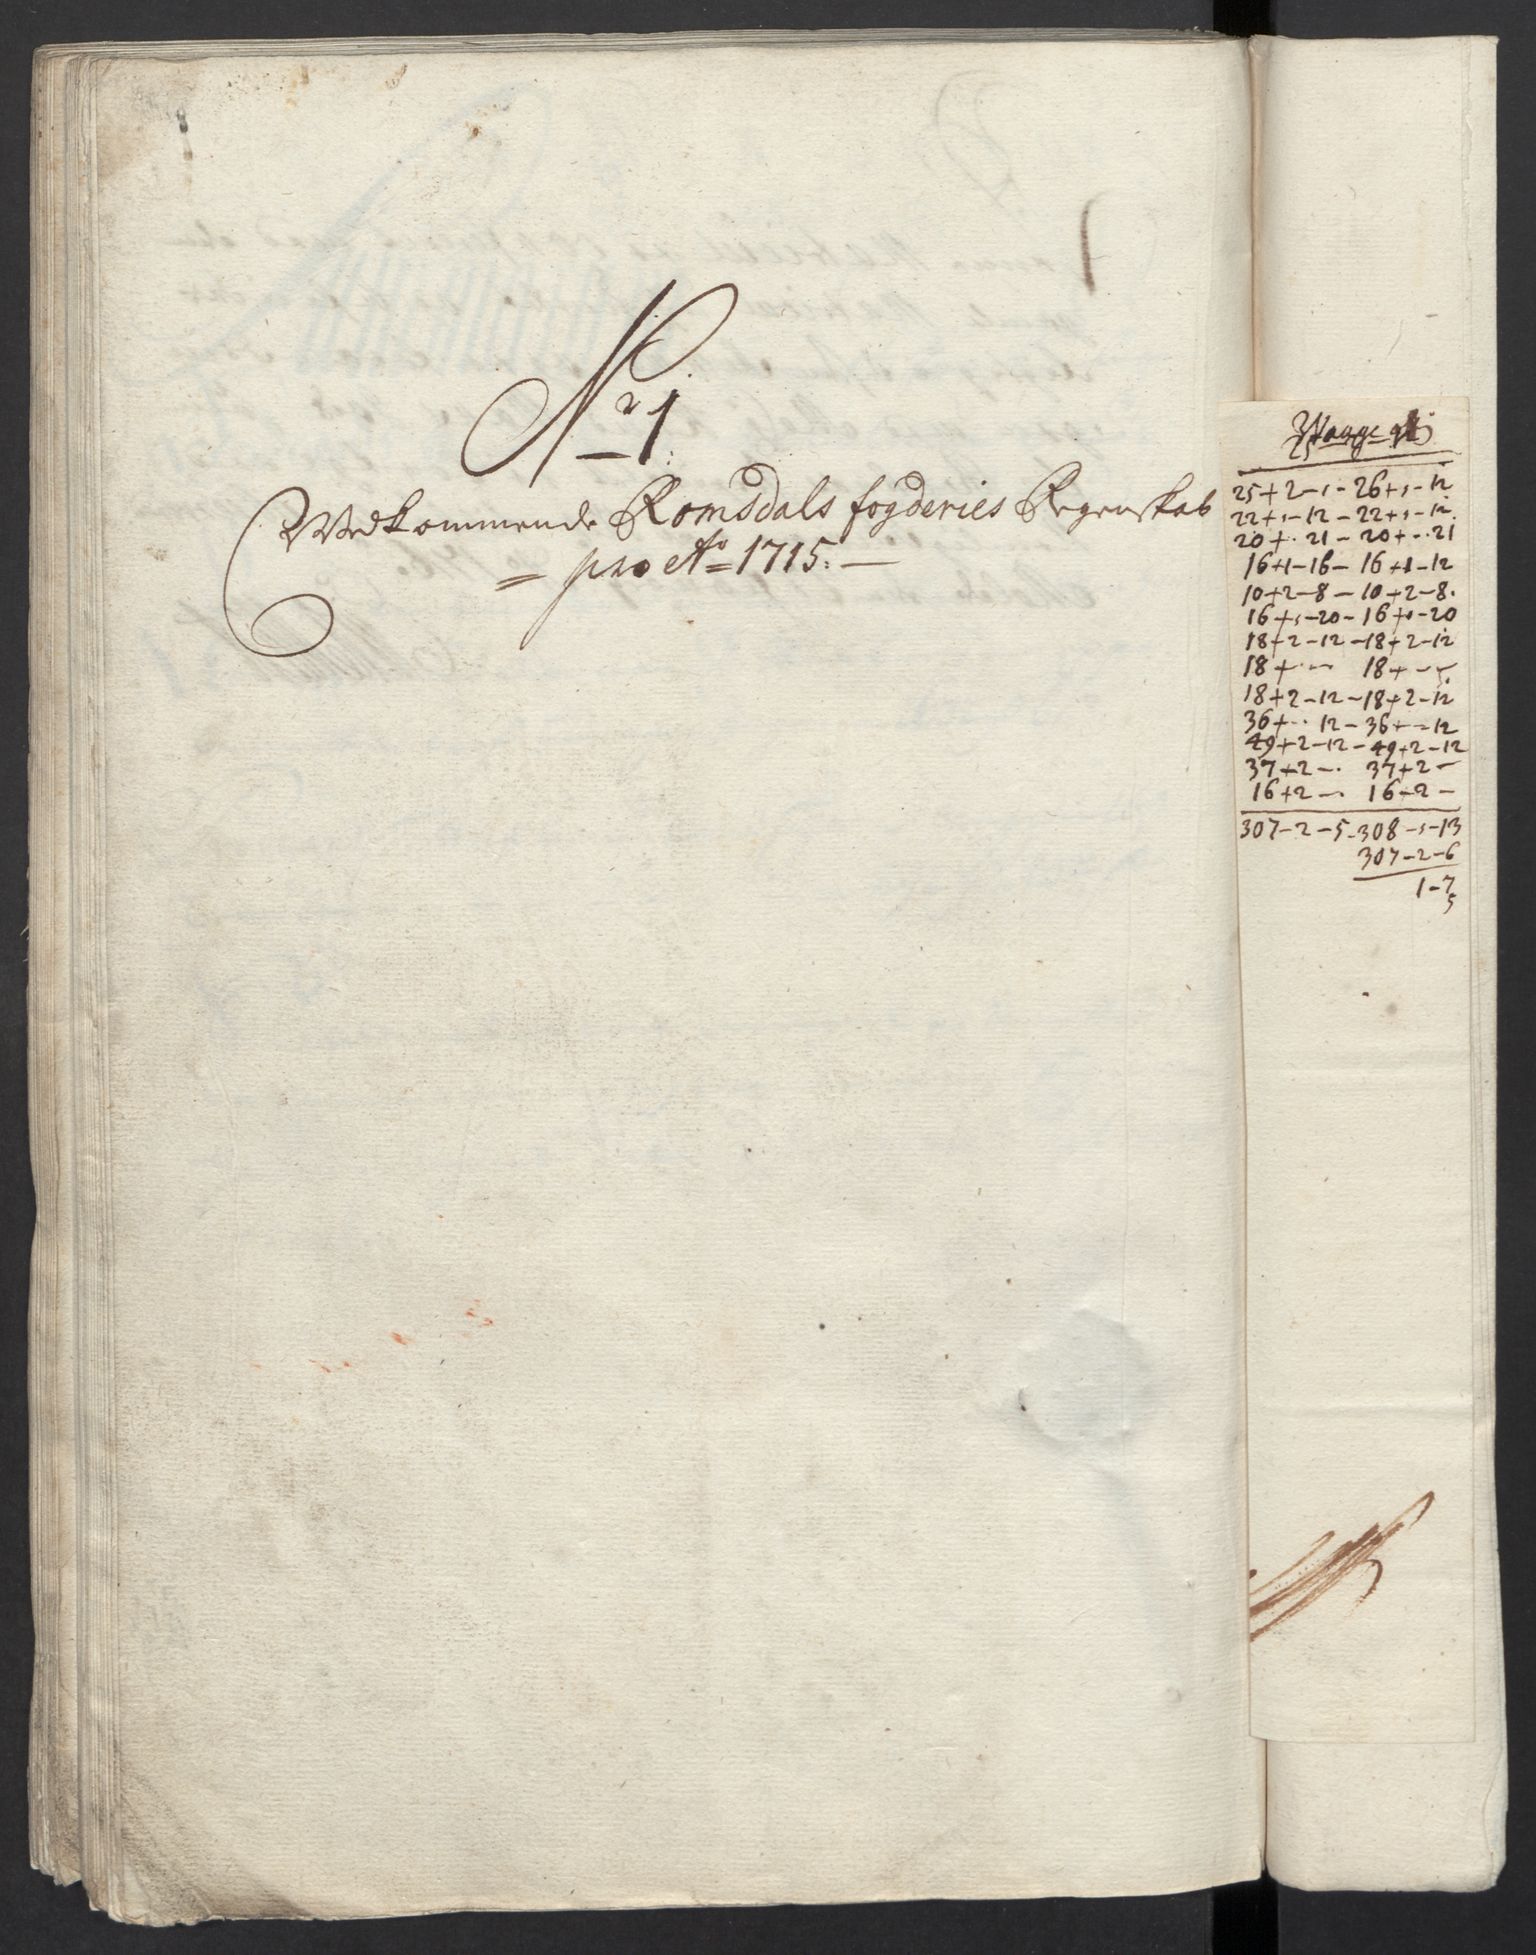 No 1.
Vedkommende Romsdals fogderies Regenskab
= pro Ao = 1715: —
Waage
25+2-1-26+1-12
22+1-12-22+1-12
20+·21-20+··21
16+1-16-16+1-12
10+2-8-10+2-8·
16+1-20-16+1-20
18+2-12-18+2-12
18+·— 18+--
18+2-12-18+2-12
36+··12-36+--12
49+2-12-49+2-12
37+2-· 37+2-
16+2-· 16+2-
307-2-5-308-1-13
307-2-6
1-7